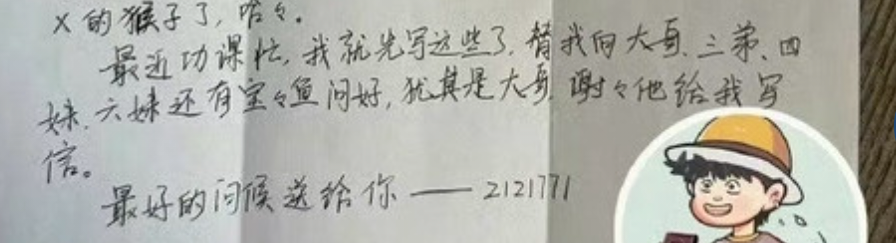 X的猴子了，哈々。
最近功课忙，我就先写这些了，替我向大哥、三弟、四
妹、六妹还有宝々鱼问好，犹其是大哥，谢々他给我写
信。
最好的问候送给你——2121771